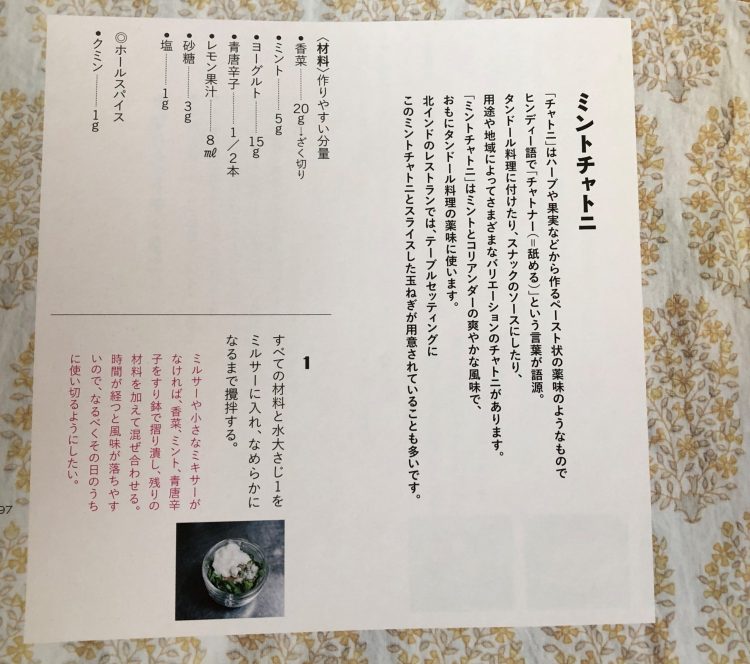 ミントチャトニ
「チャトニ」はハーブや果実などから作るペースト状の薬味のようなもので
ヒンディー語で「チャトナー(=舐める)」という言葉が語源。
タンドール料理に付けたり、スナックのソースにしたり、
用途や地域によってさまざまなバリエーションのチャトニがあります。
「ミントチャトニ」はミントとコリアンダーの爽やかな風味で、
おもにタンドール料理の薬味に使います。
北インドのレストランでは、テーブルセッティングに
このミントチャトニとスライスした玉ねぎが用意されていることも多いです。
〈材料〉作りやすい分量
●香菜………20g→ざく切り
●ミント………5g
●ヨーグルト………15g
●青唐辛子………1/2本
●レモン果汁………8㎖
●砂糖………3g
●塩………1g
◎ホールスパイス
●クミン………1g
1
すべての材料と水大さじ1を
ミルサーに入れ、なめらかに
なるまで攪拌する。
ミルサーや小さなミキサーが
なければ、香菜、ミント、青唐辛
子をすり鉢で摺り潰し、残りの
材料を加えて混ぜ合わせる。
時間が経つと風味が落ちやす
いので、なるべくその日のうち
に使い切るようにしたい。
97